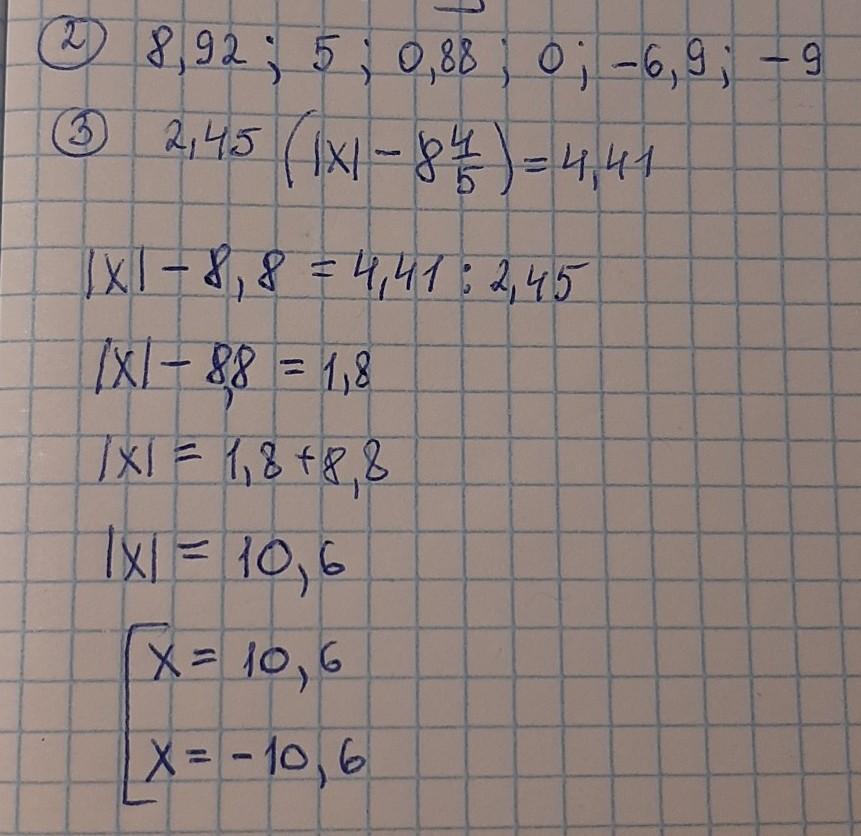 ② 8,92; 5; 0,88; 0; -6,9; -9
③ 2,45 (|x| - 8 4/5) = 4,41
|x| - 8,8 = 4,41 : 2,45
|x| - 8,8 = 1,8
|x| = 1,8 + 8,8
|x| = 10,6
[ x = 10,6
x = -10,6